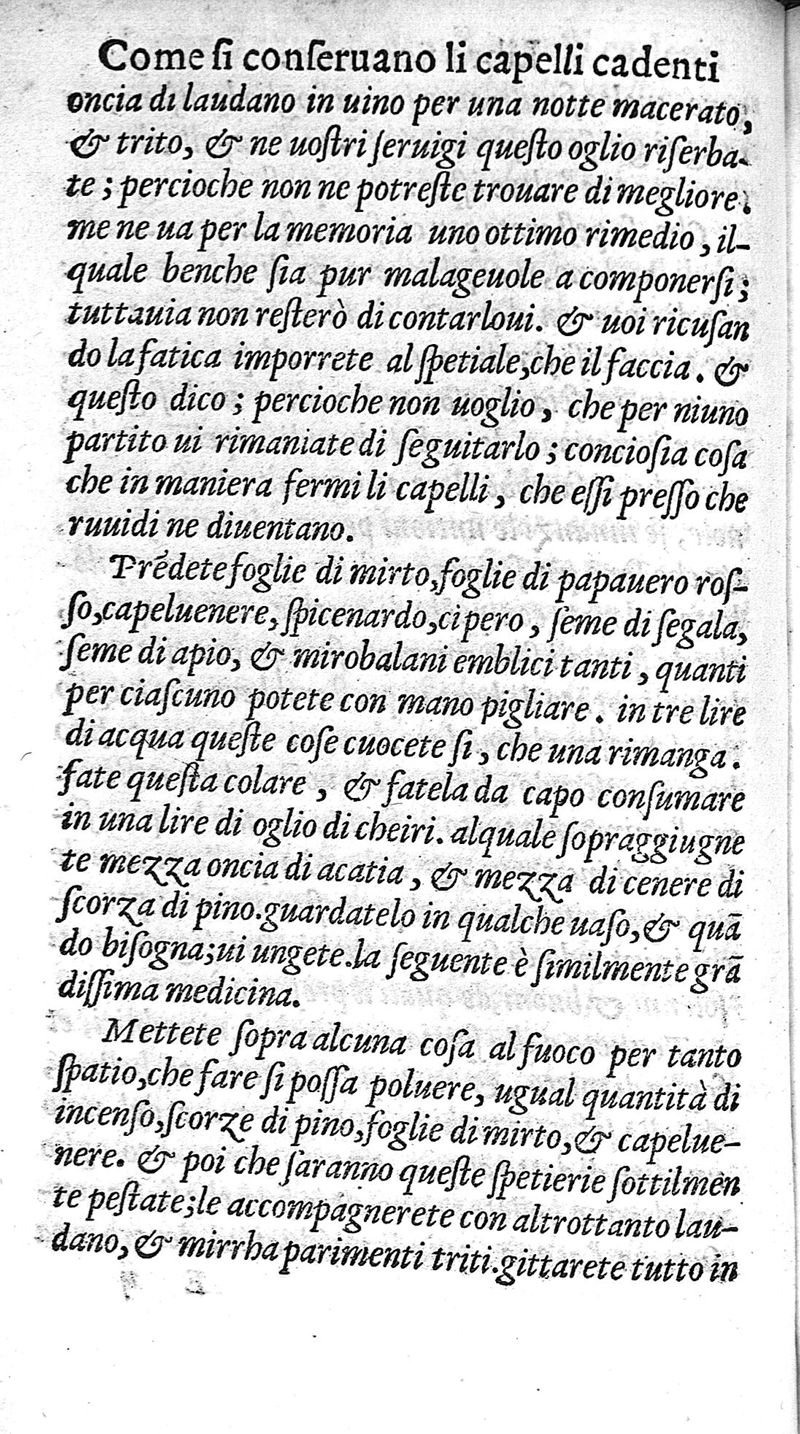 Come ſi conſeruano li capelli cadenti
oncia di laudano in uino per una notte macerato,
& trito, & ne uoſtri ſeruigi queſto oglio riſerba-
te; percioche non ne potreſte trouare di megliore.
me ne ua per la memoria uno ottimo rimedio, il-
quale benche ſia pur malageuole a componerſi;
tuttauia non reſterò di contarloui. & uoi ricuſan
do la fatica imporrete al ſpetiale, che il faccia. &
queſto dico; percioche non uoglio, che per niuno
partito ui rimaniate di ſeguitarlo; concioſia coſa
che in maniera fermi li capelli, che eſſi preſſo che
ruuidi ne diuentano.
Prēdete foglie di mirto, foglie di papauero roſ-
ſo, capeluenere, ſpicenardo, cipero, ſeme di ſegala,
ſeme di apio, & mirobalani emblici tanti, quanti
per ciaſcuno potete con mano pigliare. in tre lire
di acqua queſte coſe cuocete ſi, che una rimanga.
fate queſta colare, & fatela da capo conſumare
in una lire di oglio di cheiri. alquale ſopraggiugne
te mezza oncia di acatia, & mezza di cenere di
ſcorza di pino. guardatelo in qualche uaſo, & quā
do biſogna; ui ungete. la ſeguente è ſimilmente grā
diſſima medicina.
Mettete ſopra alcuna coſa al fuoco per tanto
ſpatio, che fare ſi poſſa poluere, ugual quantità di
incenſo, ſcorze di pino, foglie di mirto, & capelue-
nere. & poi che ſaranno queſte ſpetierie ſottilmen
te peſtate; le accompagnerete con altrottanto lau-
dano, & mirrha parimenti triti. gittarete tutto in